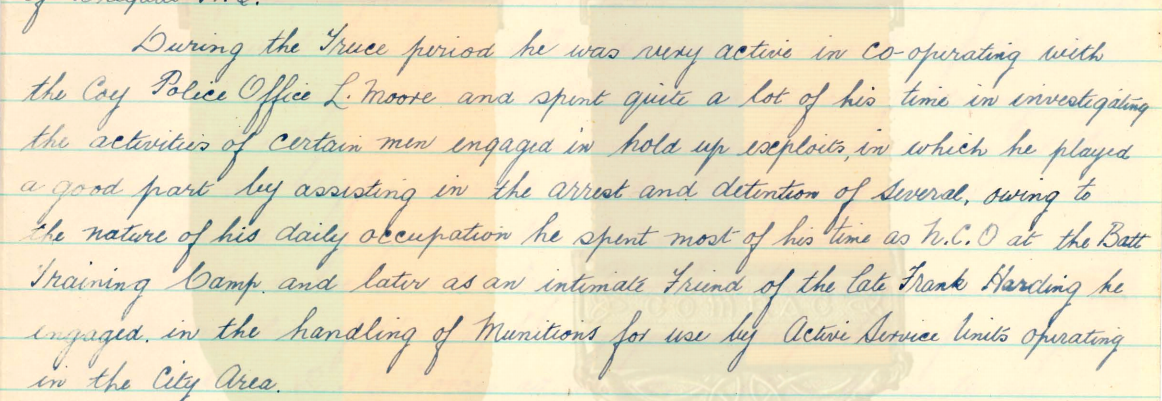 of Brigade H.Q.
During the Truce period he was very active in co-operating with
the Coy Police Office L. Moore and spent quite a lot of his time in investigating
the activities of certain men engaged in hold up exploits, in which he played
a good part by assisting in the arrest and detention of several, owing to
the nature of his daily occupation he spent most of his time as N.C.O at the Batt
Training Camp. and later as an intimate Friend of the late Frank Harding he
engaged. in the handling of Munitions for use by Active Service Units operating
in the City Area.